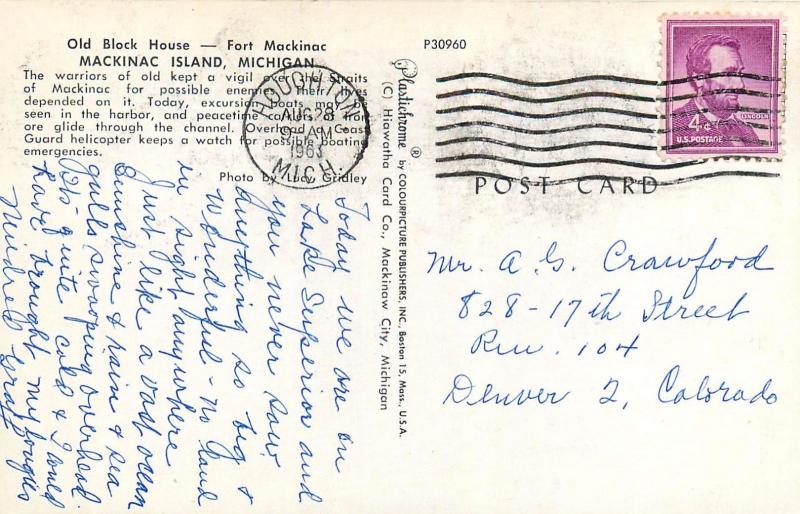 Old Block House — Fort Mackinac
MACKINAC ISLAND, MICHIGAN
The warriors of old kept a vigil over the Straits
of Mackinac for possible enemies. Their lives
depended on it. Today, excursion boats may be
seen in the harbor, and peacetime carriers of iron
ore glide through the channel. Overhead a Coast
Guard helicopter keeps a watch for possible boating
emergencies.
Photo by Gridley
P30960
Plastichrome ® by COLOURPICTURE PUBLISHERS, INC., Boston 15, Mass., U.S.A.
(C) Hiawatha Card Co., Mackinaw City, Michigan
HOUGHTON
AUG 28
9 AM
1963
MICH.
LINCOLN
4¢
U.S. POSTAGE
POST CARD
Today we are on
Lake Superior and
you never saw
anything so big &
wonderful - no land
in sight anywhere
Just like a vast ocean
Sunshine & rain & sea
gulls swooping overhead.
It's quite cold & I could
have brought my
Mildred
Mr. A. G. Crawford
828-17th Street
Rm. 104
Denver 2, Colorado